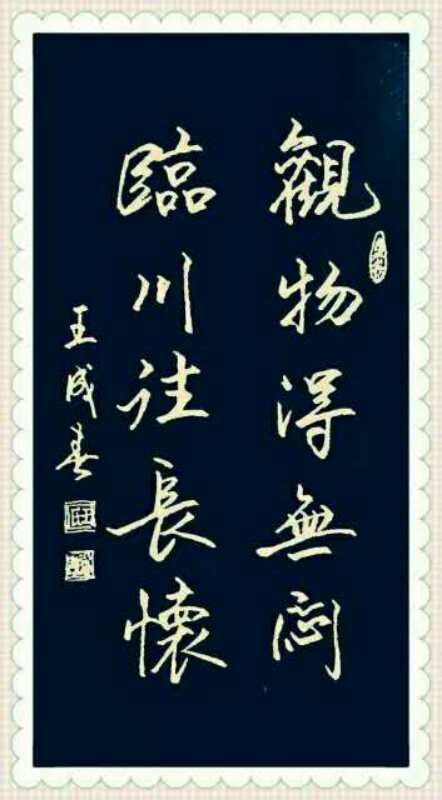 觀物得無悶
臨川註長懷
王成春